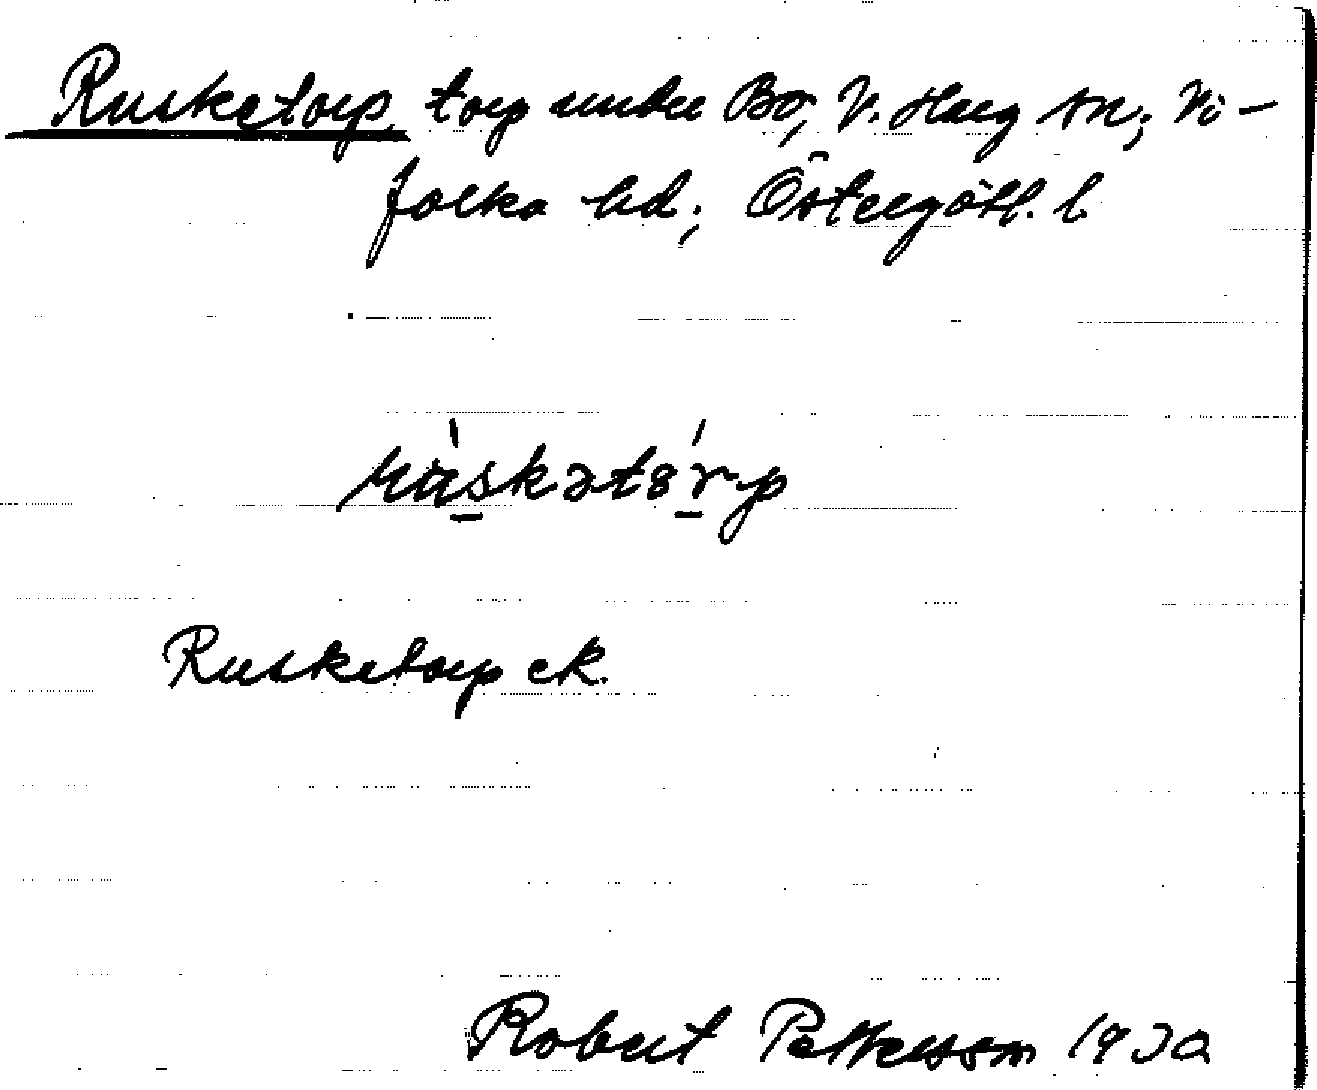 Rusketorp, torp under Bo, V. Harg sn; Vi-
folka hd; Östergötl. l.
ruskətorp
Rusketorp ek.
Robert Pettersson 1930